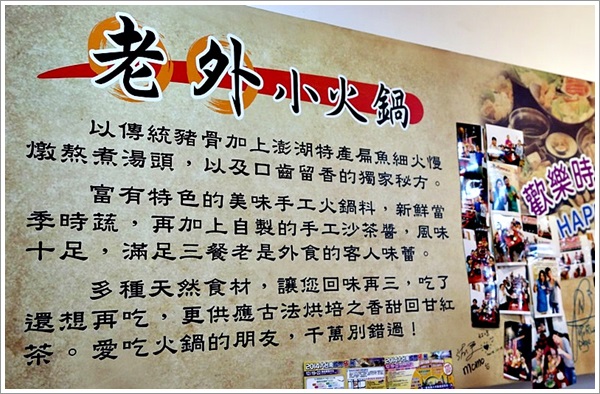 老外小火鍋
以傳統豬骨加上澎湖特產扁魚細火慢
燉熬煮湯頭，以及口齒留香的獨家秘方。
富有特色的美味手工火鍋料，新鮮當
季時蔬，再加上自製的手工沙茶醬，風味
十足，滿足三餐老是外食的客人味蕾。
多種天然食材，讓您回味再三，吃了
還想再吃，更供應古法烘培之香甜回甘紅
茶。愛吃火鍋的朋友，千萬別錯過！
歡樂時
HAP
momo